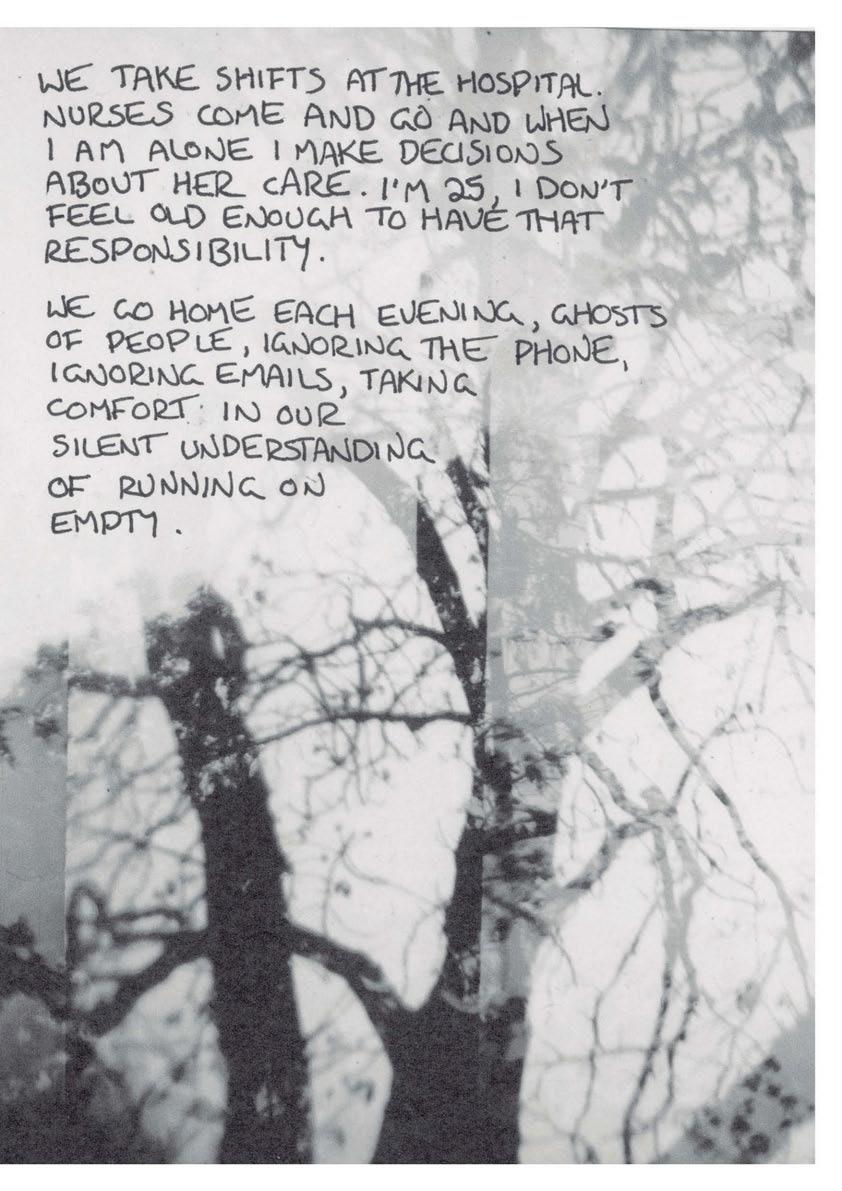 WE TAKE SHIFTS AT THE HOSPITAL.
NURSES COME AND GO AND WHEN
I AM ALONE I MAKE DECISIONS
ABOUT HER CARE. I'M 25, I DON'T
FEEL OLD ENOUGH TO HAVE THAT
RESPONSIBILITY.
WE GO HOME EACH EVENING, GHOSTS
OF PEOPLE, IGNORING THE PHONE,
IGNORING EMAILS, TAKING
COMFORT IN OUR
SILENT UNDERSTANDING
OF RUNNING ON
EMPTY.